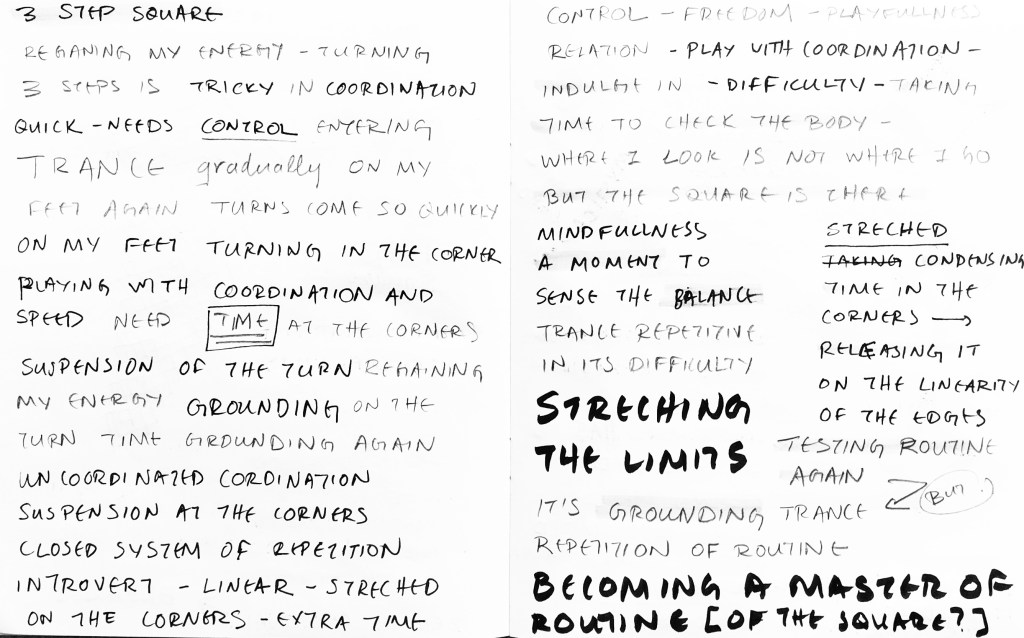 3 STEP SQUARE
REGANING MY ENERGY - TURNING
3 STEPS IS TRICKY IN COORDINATION
QUICK - NEEDS CONTROL ENTERING
TRANCE gradually ON MY
FEET AGAIN TURNS COME SO QUICKLY
ON MY FEET TURNING IN THE CORNER
PLAYING WITH COORDINATION AND
SPEED NEED TIME AT THE CORNERS
SUSPENSION OF THE TURN REGAINING
MY ENERGY GROUNDING ON THE
TURN TIME GROUNDING AGAIN
UNCOORDINATED CORDINATION
SUSPENSION AT THE CORNERS
CLOSED SYSTEM OF REPETITION
INTROVERT - LINEAR - STRECHED
ON THE CORNERS - EXTRA TIME
CONTROL - FREEDOM - PLAYFULLNESS
RELATION - PLAY WITH COORDINATION -
INDULGE IN - DIFFICULTY - TAKING
TIME TO CHECK THE BODY -
WHERE I LOOK IS NOT WHERE I GO
BUT THE SQUARE IS THERE
MINDFULLNESS
A MOMENT TO
SENSE THE BALANCE
TRANCE REPETITIVE
IN ITS DIFFICULTY
STRECHING
THE LIMITS
STRECHED
TAKING CONDENSING
TIME IN THE
CORNERS →
RELEASING IT
ON THE LINEARITY
OF THE EDGES
TESTING ROUTINE
AGAIN
BUT.)
IT'S GROUNDING TRANCE
REPETITION OF ROUTINE
BECOMING A MASTER OF
ROUTINE [OF THE SQUARE?]